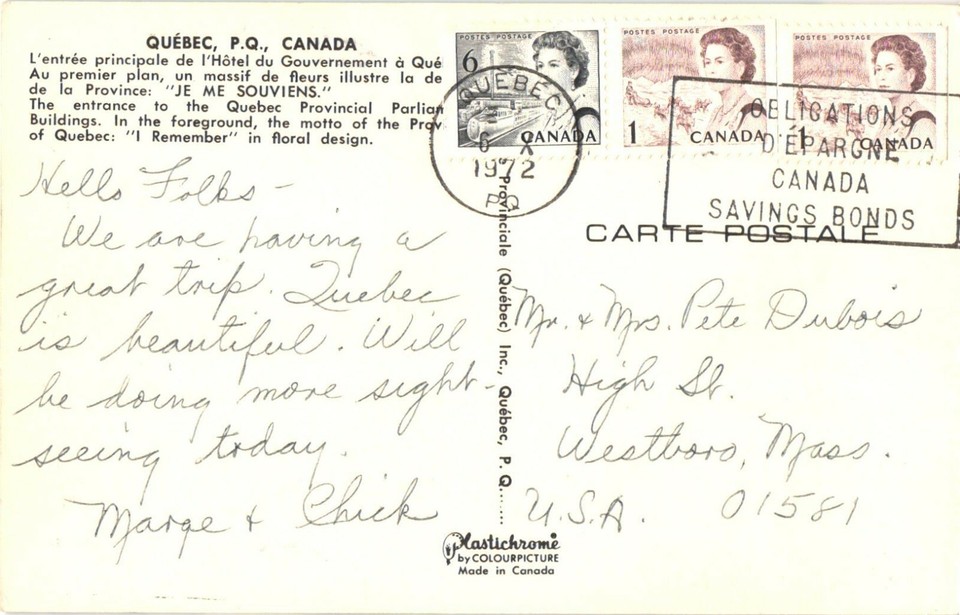 QUÉBEC, P.Q., CANADA
L'entrée principale de l'Hôtel du Gouvernement à Qué
Au premier plan, un massif de fleurs illustre la de
de la Province: "JE ME SOUVIENS."
The entrance to the Quebec Provincial Parliam
Buildings. In the foreground, the motto of the Prov
of Quebec: "I Remember" in floral design.
POSTES POSTAGE
6
CANADA
POSTES POSTAGE
1
CANADA
POSTES POSTAGE
1
CANADA
QUÉBEC
6 X
1972
PQ
OBLIGATIONS
D'ÉPARGNE
CANADA
SAVINGS BONDS
CARTE POSTALE
Hello Folks -
We are having a
great trip. Quebec
is beautiful. Will
be doing more sight-
seeing today.
Marge & Chick
Provinciale (Québec) Inc., Québec, P. Q.
Mr. & Mrs. Pete Dubois
High St.
Westboro, Mass.
U.S.A. 01581
Plastichrome
by COLOURPICTURE
Made in Canada